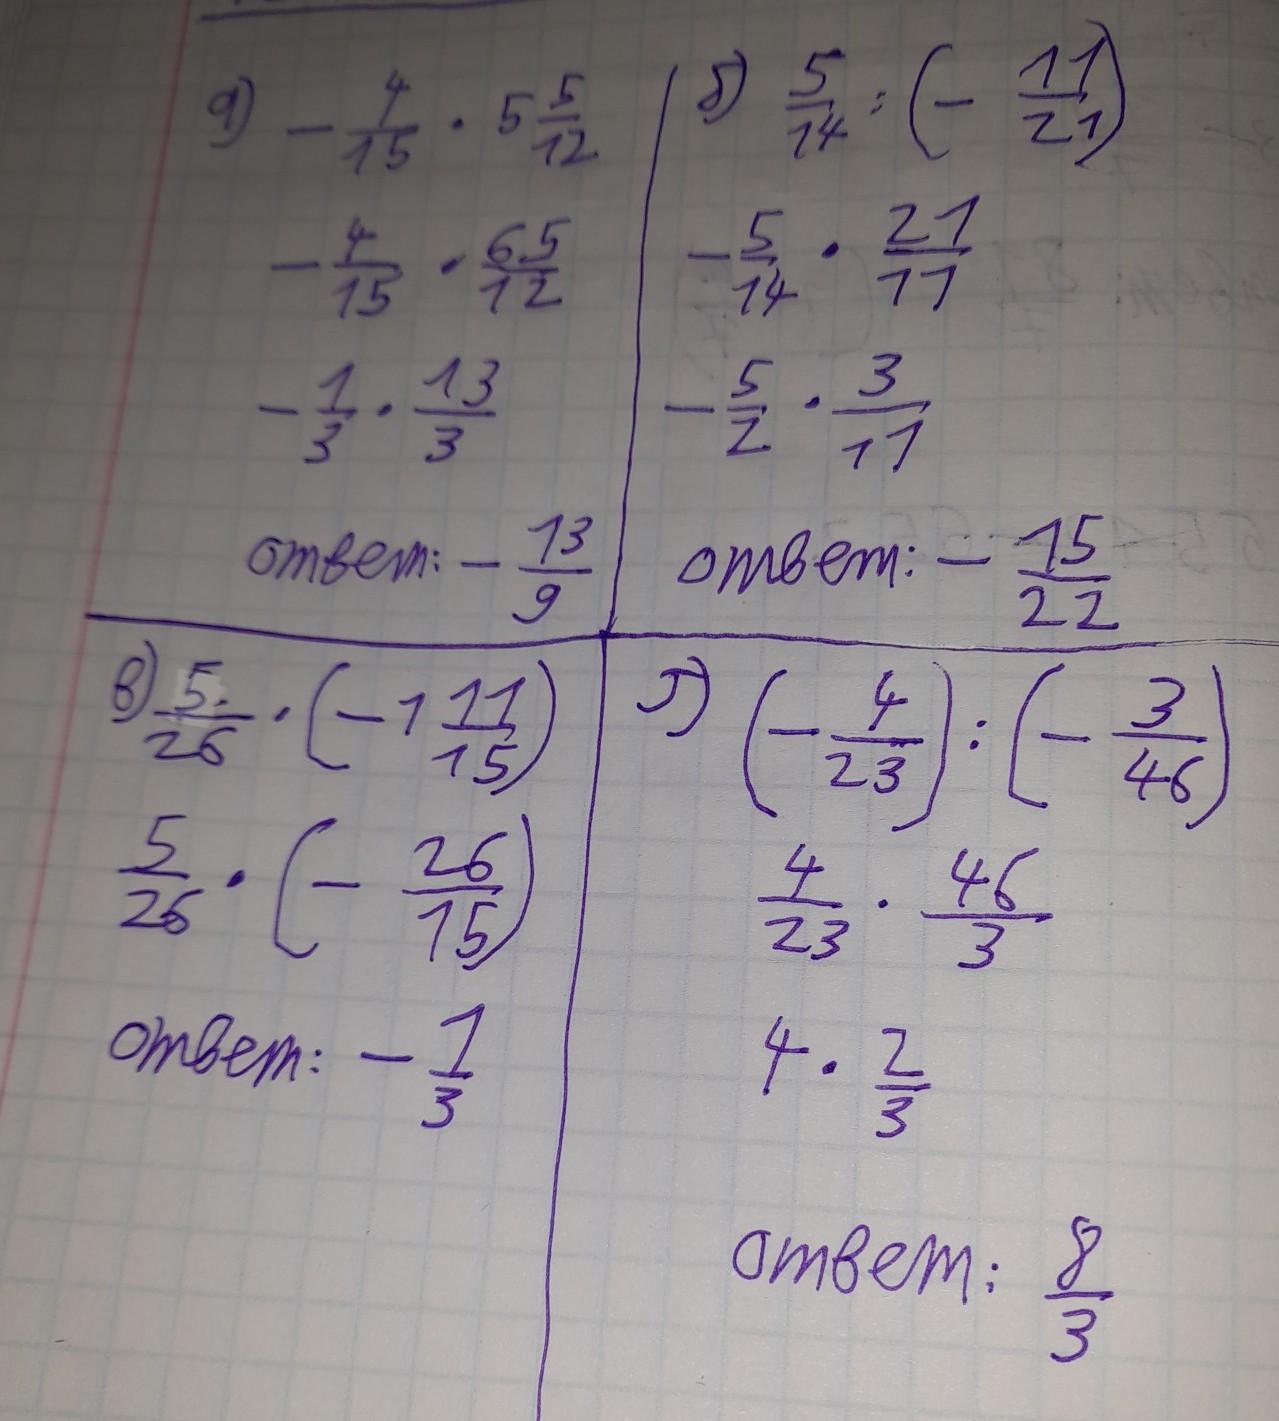 а) - 4/15 · 5 5/12
- 4/15 · 65/12
- 1/3 · 13/3
ответ: - 13/9
б) 5/14 : (- 11/21)
- 5/14 · 21/11
- 5/2 · 3/11
ответ: - 15/22
в) 5/26 · (- 1 11/15)
5/26 · (- 26/15)
ответ: - 1/3
г) (- 4/23) : (- 3/46)
4/23 · 46/3
4 · 2/3
ответ: 8/3